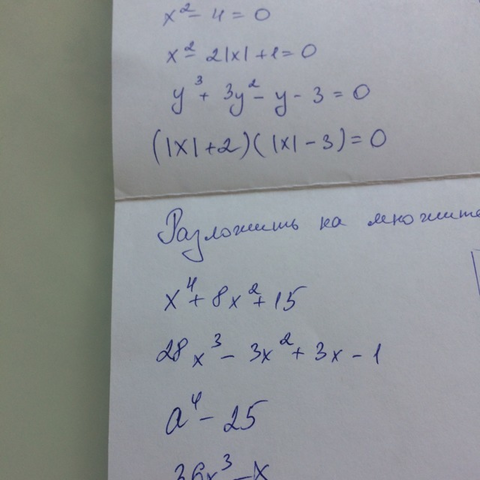 x² - 4 = 0
x² - 2|x| + 1 = 0
y³ + 3y² - y - 3 = 0
(|x| + 2)(|x| - 3) = 0
Разложить на множите
x⁴ + 8x² + 15
28x³ - 3x² + 3x - 1
a⁴ - 25
36x³ - x